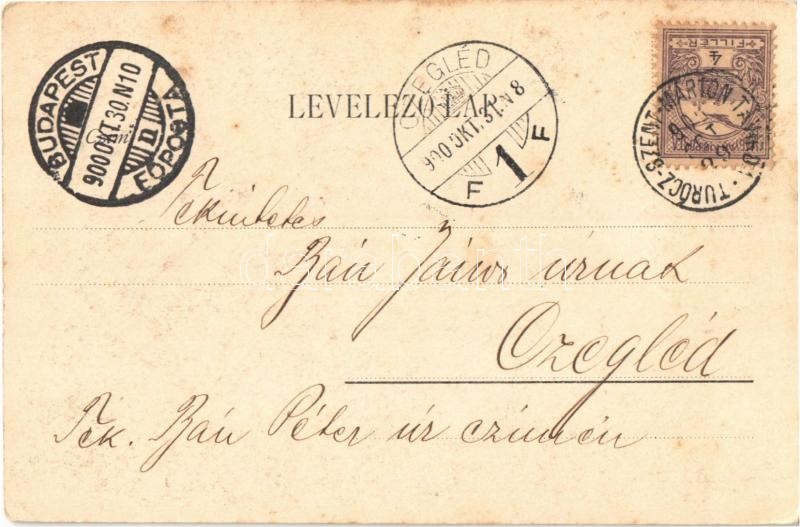 BUDAPEST
900 OKT.30.N10
n
FŐPOSTA
CZEGLÉD
900 OKT.31.N8
F 1 F
LEVELEZŐ-LAP.
4
FILLÉR
TURÓCZ-SZENT-MÁRTON
Tekintetes
Bán János úrnak
Czegléd
Tek. Bán Péter úr czímén
darabanth